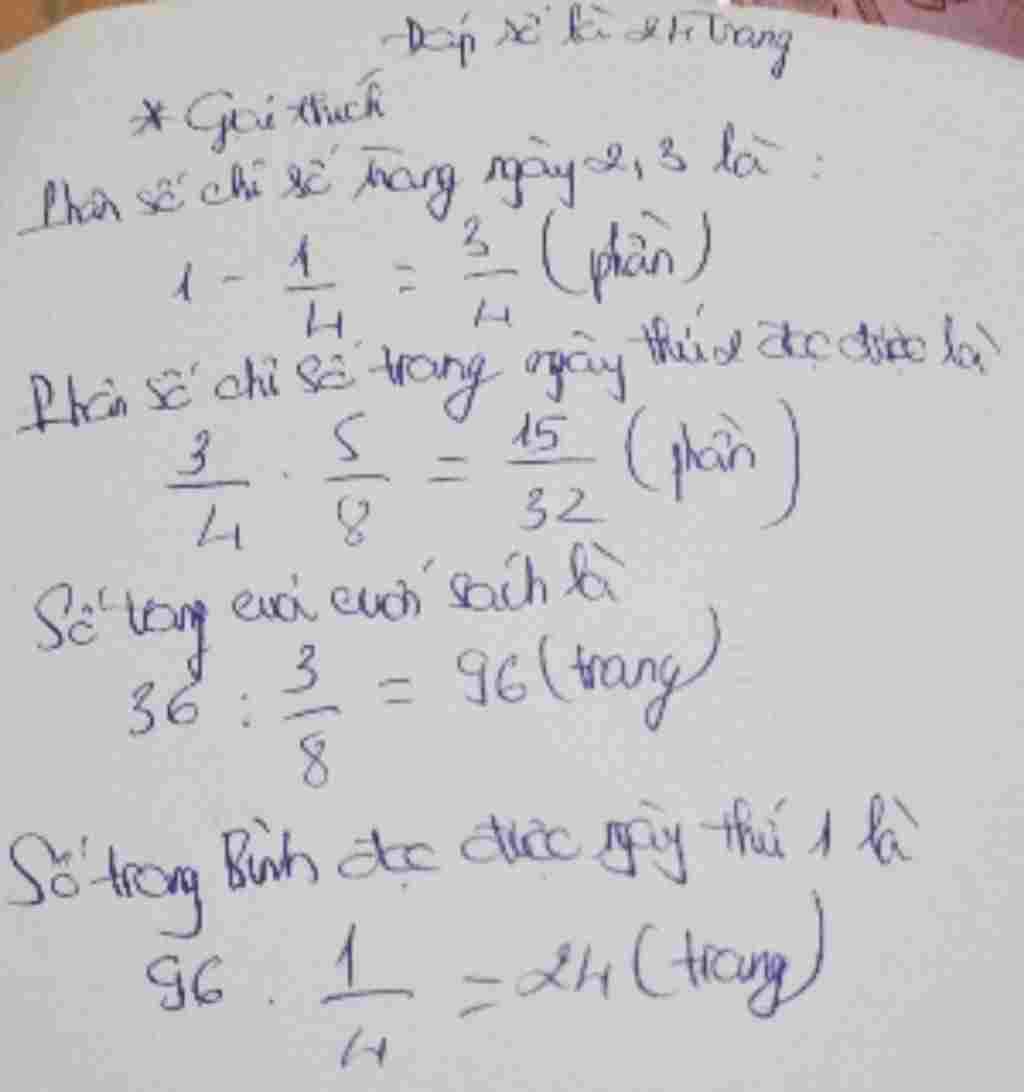 Đáp số là 24 trang
* Giải thích
Phân số chỉ số trang ngày 2, 3 là :
1 - 1/4 = 3/4 (phần)
Phân số chỉ số trang ngày thứ 2 đọc được là
3/4 . 5/8 = 15/32 (phần)
Số trang cuả cuốn sách là
36 : 3/8 = 96 (trang)
Số trang Bình đọc được ngày thứ 1 là
96 . 1/4 = 24 (trang)